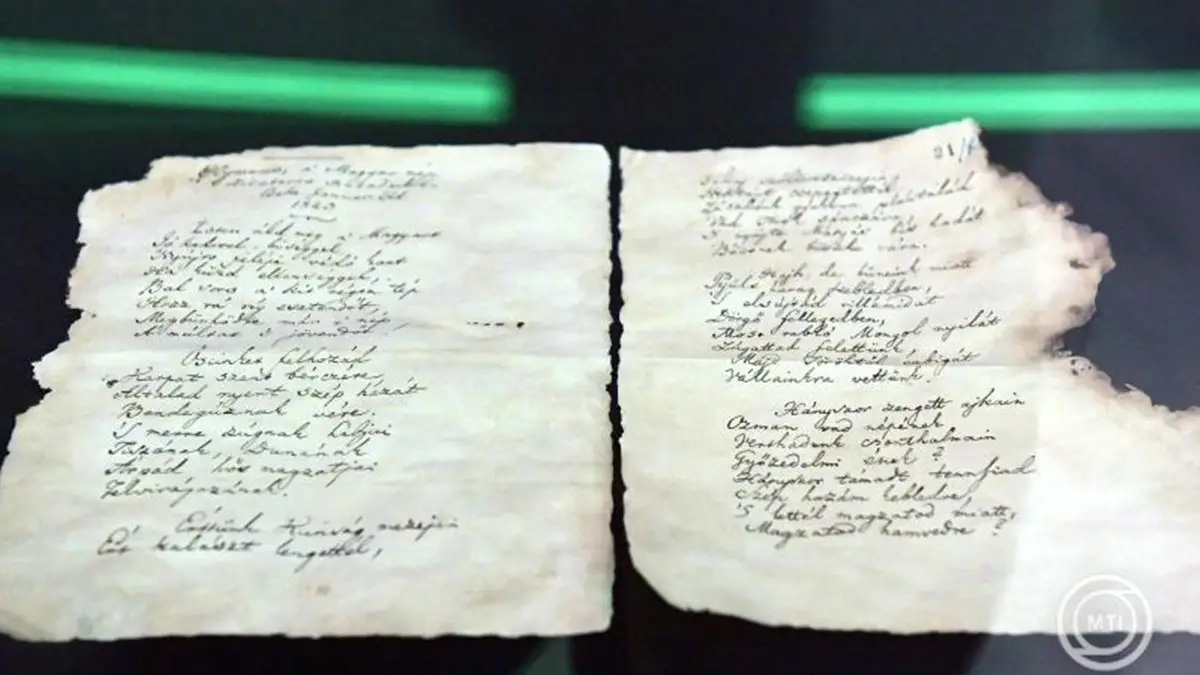 Hymnus, a' Magyar nép
zivataros századaiból
Cseke Januar 22d
1823
Isten áldd meg a' Magyart
Jó kedvvel, bőséggel,
Nyújts feléje védő kart
Ha küzd ellenséggel;
Bal sors a' kit régen tép
Hozz rá víg esztendőt,
Megbűnhődte már e' nép
A' multat 's jövendőt.
Őseinket felhozád
Karpat szent bérczére,
Általad nyert szép hazát
Bendegúznak vére.
'S merre zúgnak habjai
Tiszának, Dunának
Árpád hős magzatjai
Felvirágozának.
Értünk Kunság mezejin
Ért kalászt lengettél,
Tokaj szőlővesszejin
Nektárt csepegtettél,
Zászlónk gyakran plántálád
Vad török sáncára,
'S nyögte Mátyás bús hadát
Bécsnek büszke vára.
Hajh, de bűneink miatt
Gyúlt harag kebledben,
'S elsújtád villámidat
Dörgő fellegedben,
Most rabló Mongol nyilát
Zúgattad felettünk,
Majd Töröktől rabigát
Vállainkra vettünk.
Hányszor zengett ajkain
Ozman vad népének
Vert hadunk csonthalmain
Győzedelmi ének?
Hányszor támadt tennfiad
Szép hazám kebledre,
'S lettél magzatod miatt,
Magzatod hamvedre?
21/
MTI